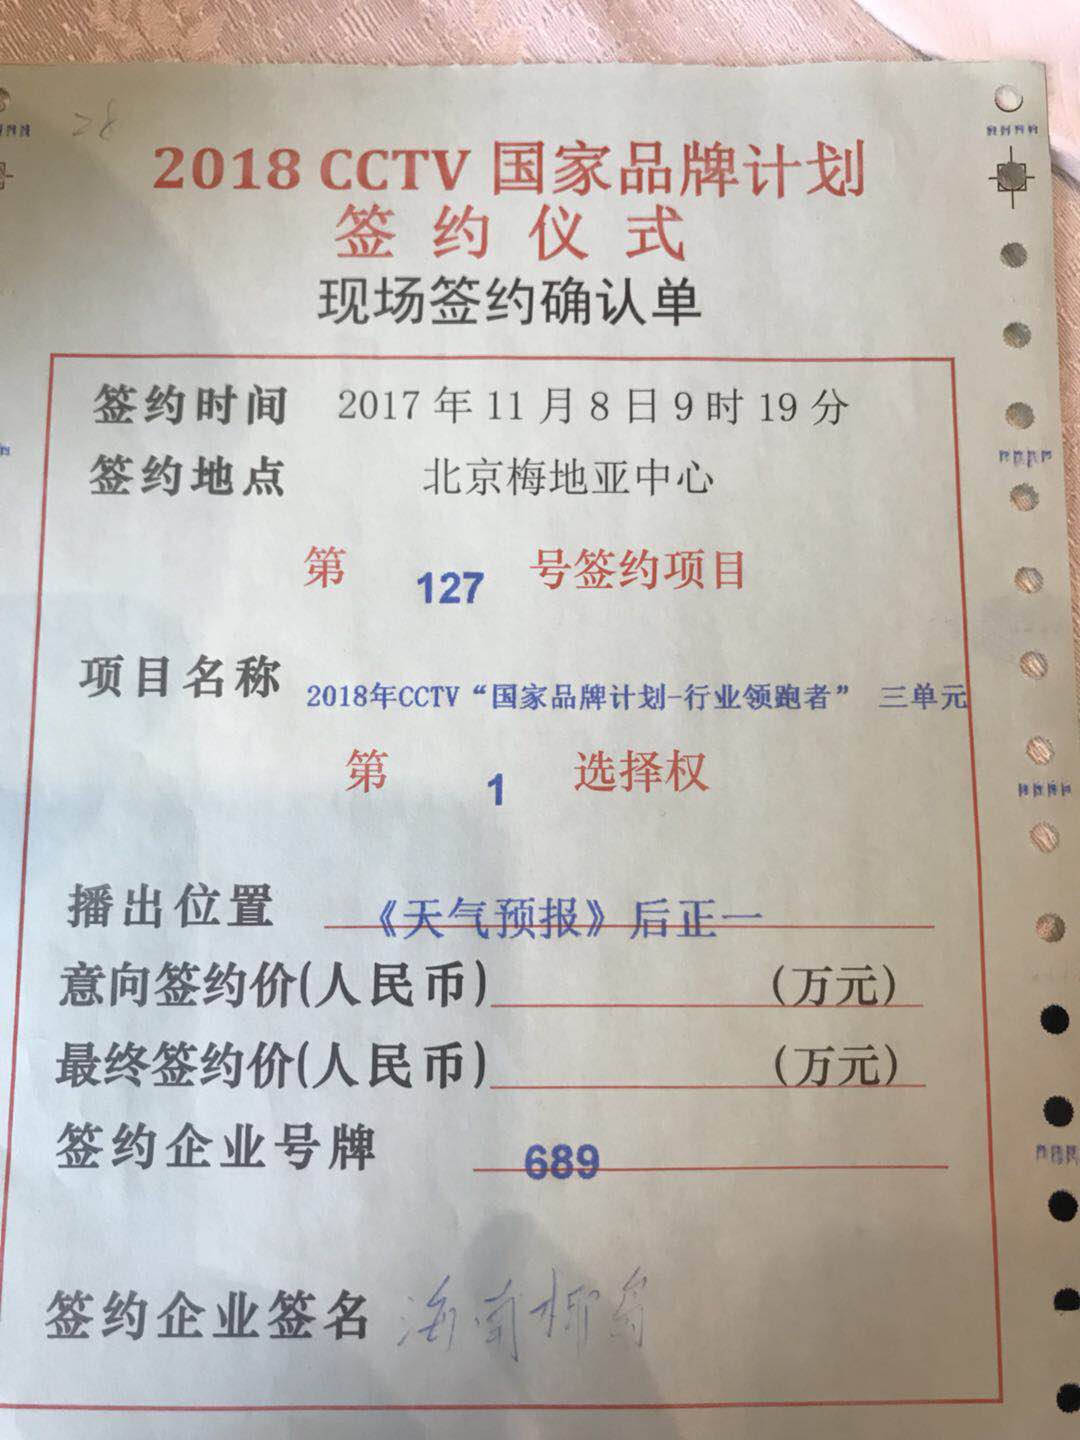 28
2018 CCTV 国家品牌计划
签约仪式
现场签约确认单
签约时间 2017年11月8日9时19分
签约地点 北京梅地亚中心
第 127 号签约项目
项目名称 2018年CCTV“国家品牌计划-行业领跑者” 三单元
第 1 选择权
播出位置 《天气预报》后正一
意向签约价(人民币) (万元)
最终签约价(人民币) (万元)
签约企业号牌 689
签约企业签名 海南椰岛